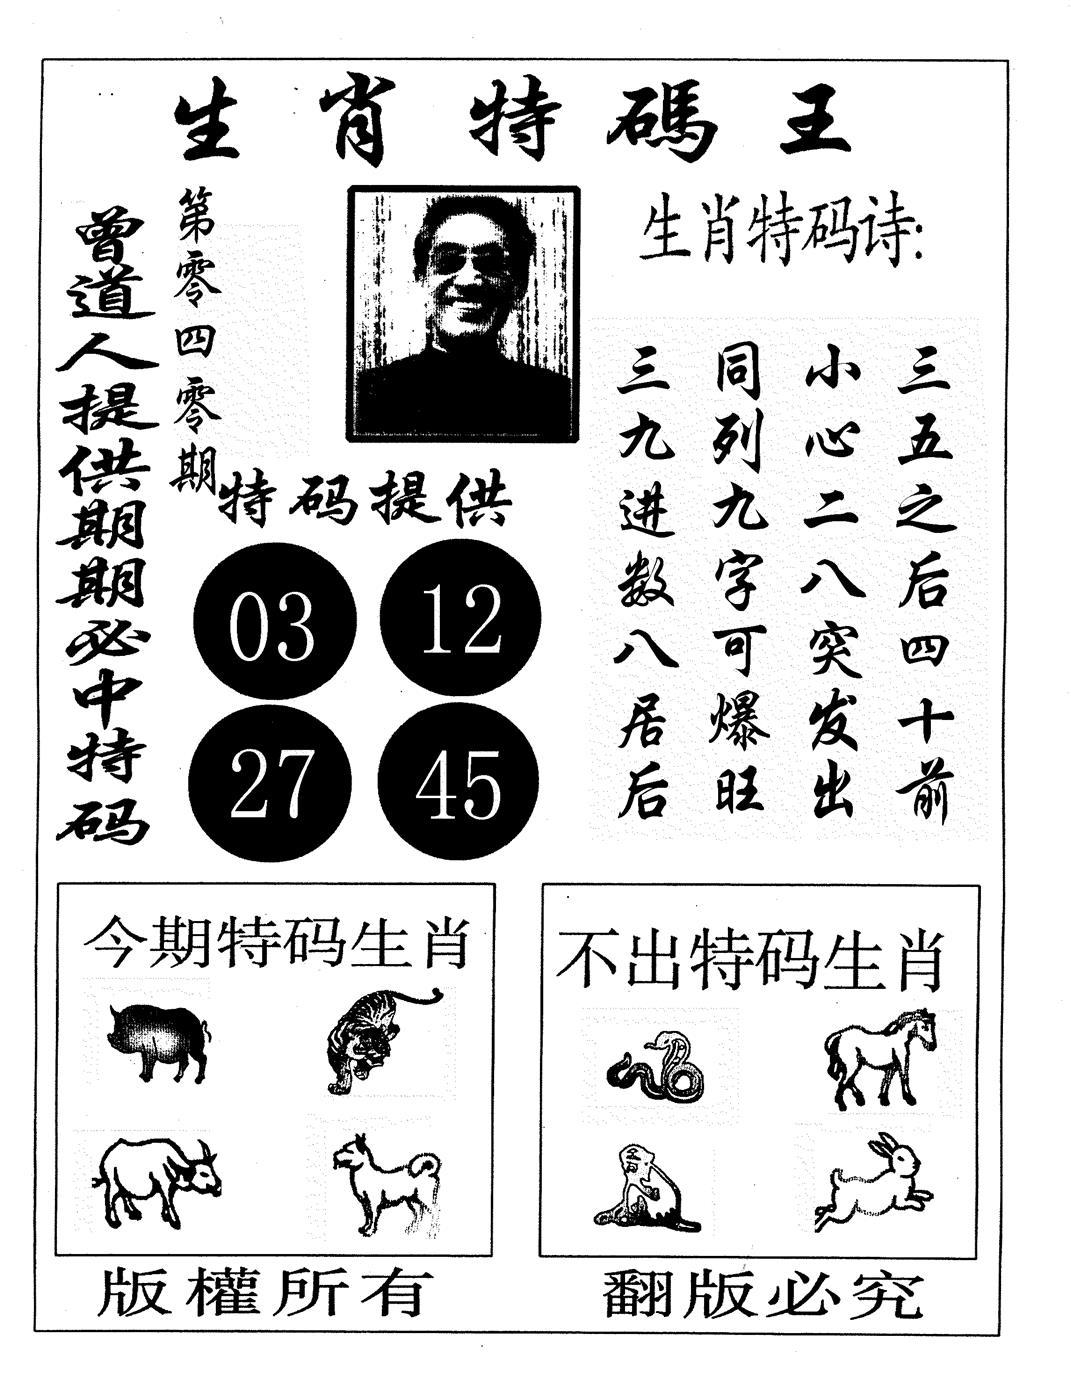 生肖特碼王
曾道人提供期期必中特码
第零四零期
生肖特码诗:
三五之后四十前
小心二八突发出
同列九字可爆旺
三九进数八居后
特码提供
03 12
27 45
今期特码生肖
不出特码生肖
版權所有
翻版必究